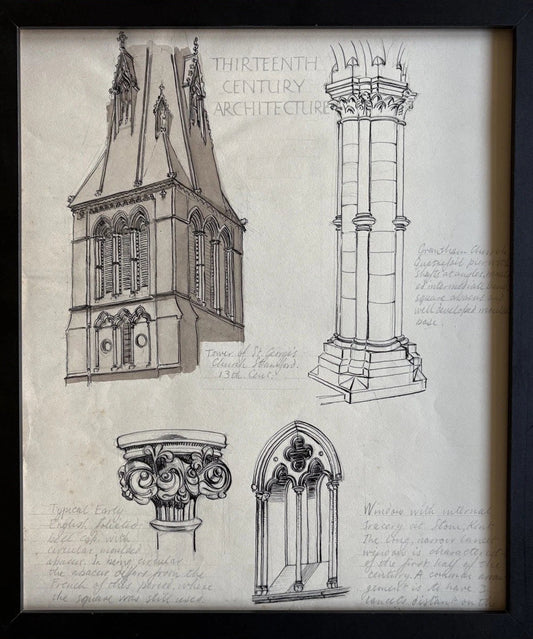 THIRTEENTH
CENTURY
ARCHITECTURE
Grantham Church
Quatrefoil pier with
shafts at angles,
ed intermediate
square abacus and
well developed
base.
Tower of St. George's
Church Stamford.
13th Cent.
Typical Early
English foliated
bell cap with
circular, moulded
abacus. In being circular
the abacus differs from the
French of the period, where
the square was still used.
Window with internal
tracery at Stone, Kent
The long, narrow lancet
window is characteristic
of the first half of the
century. A common arran
gement is to have 3
lancets, distant on the